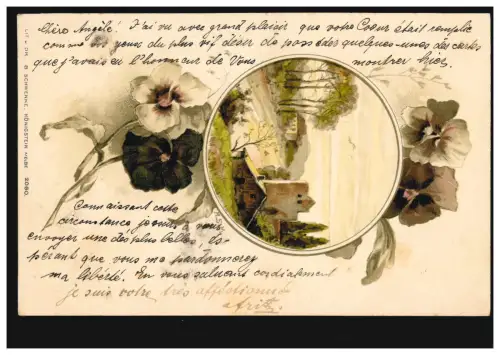 Chère Angèle! J'ai vu avec grand plaisir que votre Coeur était remplie
comme vos yeux du plus vif désir de posséder quelques-unes des cartes
que j'avais eu l'honneur de Vous montrer hier.
Connaissant cette
circonstance je
envoyer une des plus belles, Es-
pérant que vous me pardonnerez
ma liberté. En vous saluant cordialement
je suis votre très affectionné
Fritz
SCHWENKE, KÖNIGSTEIN 2080.